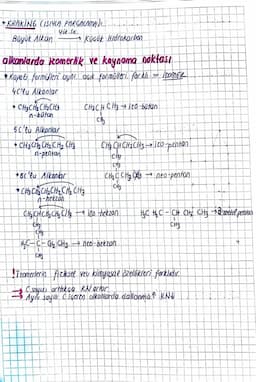 • KRAKING (ISIYLA PARÇALANMA):
yük. sıc.
Büyük Alkan → Küçük Hidrokarbon
alkanlarda izomerlik ve kaynama noktası
• Kapalı formülleri aynı açık formülleri farklı = izomer
4C'lu Alkanlar
• CH3CH2CH2CH3 CH3CHCH3 → izo-bütan
n-bütan CH3
5C'lu Alkanlar
• CH3CH2CH2CH2CH3 CH3CHCH2CH3 → izo-pentan
n-pentan CH3
CH3
• 6C'lu Alkanlar CH3CCH3 → neo-pentan
CH3
• CH3CH2CH2CH2CH2CH3
n-hekzan
CH3CHCH2CH2CH3 → izo-hekzan H3C H2C - CH CH2 CH3 → 3-metil pentan
CH3 CH3
CH3
H3C-C-CH2 CH3 → neo-hekzan
CH3
! İzomerlerin fiziksel ve kimyasal özellikleri farklıdır.
→ C sayısı arttıkça KN artar.
→ Aynı sayılı C içeren alkanlarda dallanma↑ KN↓